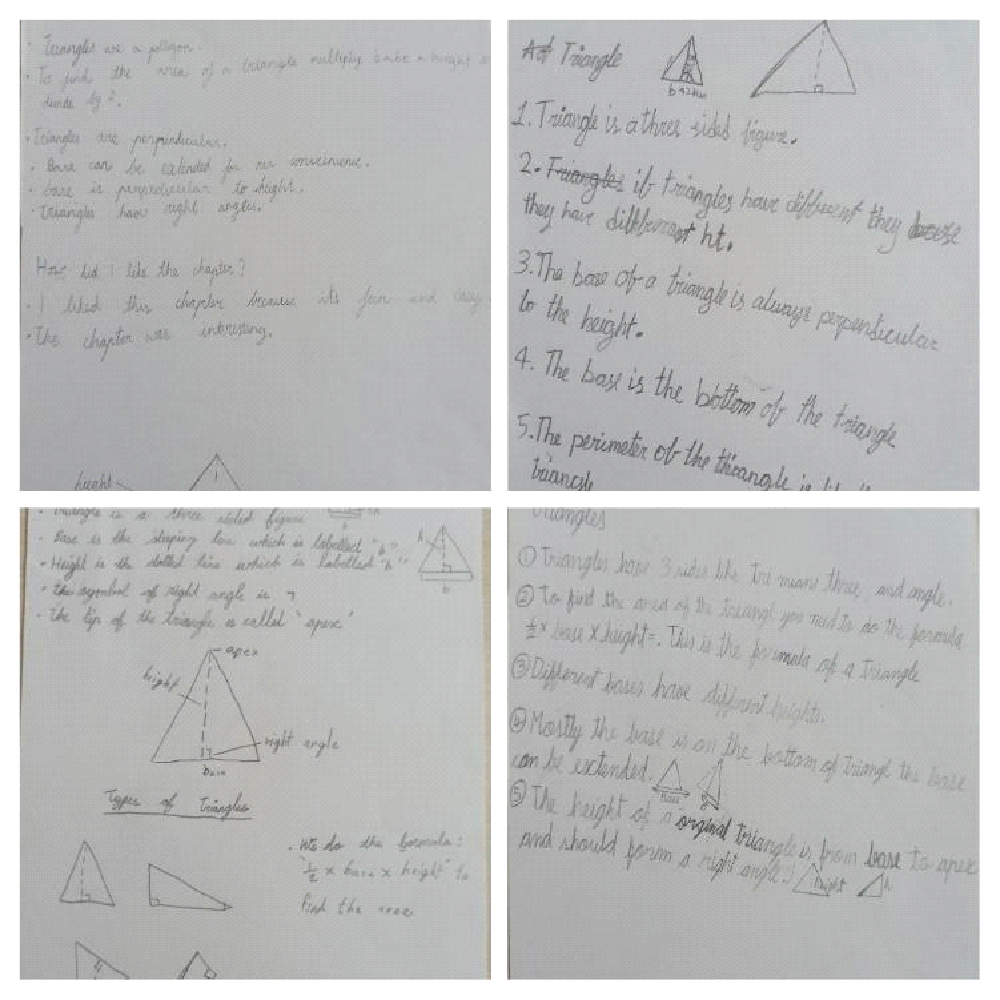 Triangles are a polygon.
To find the area of a triangle multiply base x height
divide by 2.
Triangles are perpendicular.
Base can be extended for our convinience.
base is perpendicular to height.
Triangles have right angles.
How did I like the chapter?
I liked this chapter because its fun and easy
This chapter was interesting.
height
Triangle
b
1. Triangle is a three sided figure.
2. Triangles if triangles have different they
they have different ht.
3. The base of a triangle is always perpendicular
to the height.
4. The base is the bottom of the triangle
5. The perimeter of the triangle is
triangle
Triangle is a three sided figure
Base is the sleeping line which is labelled "b"
Height is the dotted line which is labelled "h"
the symbol of right angle is ┐
the tip of the triangle is called "apex"
h
b
apex
height
right angle
base
Types of Triangles
We do the formula:
"1/2 x base x height" to
find the area
Triangles
① Triangles have 3 sides like Tri means three, and angle.
② To find the area of the triangl you need to do the formula
1/2 x base x height=. This is the formula of a Triangle
③ Different bases have different heights.
④ Mostly the base is on the bottom of Triangl the base
can be extended.
base
⑤ The height of a orginal triangle is from base to apex
and should form a right angle.
height
h